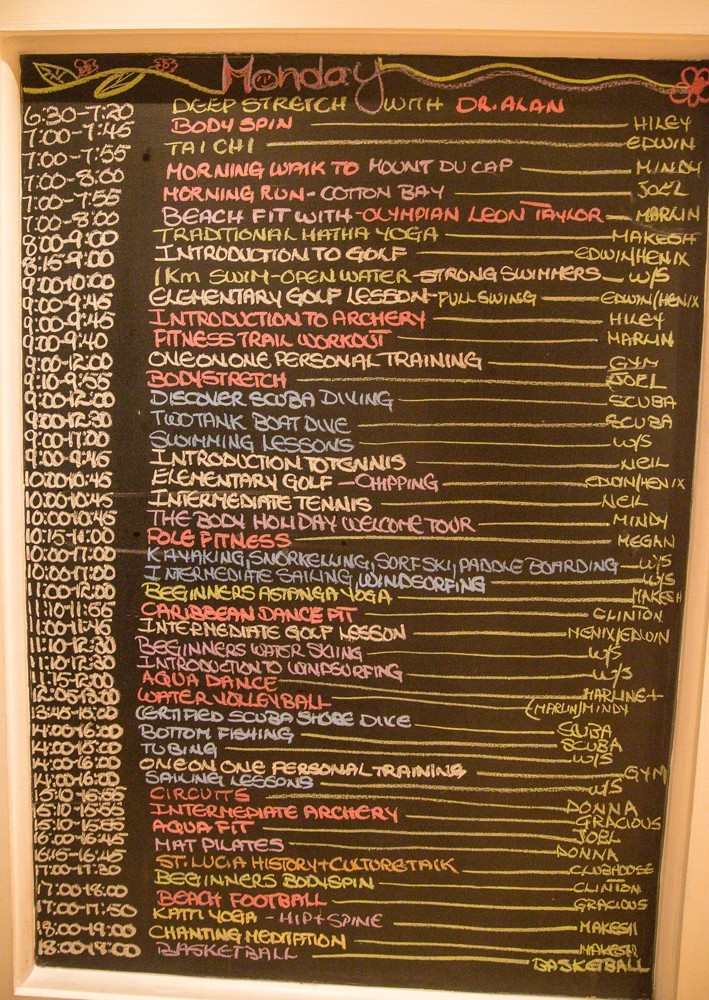 Monday
6:30-7:20 DEEP STRETCH WITH DR. ALAN
7:00-7:45 BODY SPIN HILEY
7:00-7:55 TAI CHI EDWIN
7:00-8:00 MORNING WALK TO MOUNT DU CAP MINDY
7:00-7:55 MORNING RUN - COTTON BAY JOEL
7:00-8:00 BEACH FIT WITH - OLYMPIAN LEON TAYLOR MARLIN
8:00-9:00 TRADITIONAL HATHA YOGA MAKESH
8:15-9:00 INTRODUCTION TO GOLF EDWIN/HENIX
9:00-10:00 1Km SWIM - OPEN WATER - STRONG SWIMMERS W/S
9:00-9:45 ELEMENTARY GOLF LESSON - FULL SWING EDWIN/HENIX
9:00-9:45 INTRODUCTION TO ARCHERY HILEY
9:00-9:40 FITNESS TRAIL WORKOUT MARLIN
9:00-12:00 ONE ON ONE PERSONAL TRAINING GYM
9:10-9:55 BODYSTRETCH JOEL
9:00-12:00 DISCOVER SCUBA DIVING SCUBA
9:00-12:30 TWO TANK BOAT DIVE SCUBA
9:00-17:00 SWIMMING LESSONS W/S
9:00-9:45 INTRODUCTION TO TENNIS NEIL
10:00-10:45 ELEMENTARY GOLF - CHIPPING EDWIN/HENIX
10:00-10:45 INTERMEDIATE TENNIS NEIL
10:00-10:45 THE BODY HOLIDAY WELCOME TOUR MINDY
10:15-11:00 POLE FITNESS MEGAN
10:00-17:00 KAYAKING, SNORKELLING, SURFSKI, PADDLE BOARDING W/S
10:00-17:00 INTERMEDIATE SAILING, WINDSURFING W/S
11:00-12:00 BEGINNERS ASTANGA YOGA MAKESH
11:10-11:55 CARIBBEAN DANCE FIT CLINTON
11:00-11:45 INTERMEDIATE GOLF LESSON HENIX/EDWIN
11:10-12:30 BEGINNERS WATER SKIING W/S
11:10-12:30 INTRODUCTION TO WINDSURFING W/S
11:15-12:00 AQUA DANCE MARLINE +
12:05-13:00 WATER VOLLEYBALL (MARLIN/MINDY
13:45-15:00 CERTIFIED SCUBA SHORE DICE SCUBA
14:00-16:00 BOTTOM FISHING SCUBA
14:00-15:00 TUBING W/S
14:00-16:00 ONE ON ONE PERSONAL TRAINING GYM
14:00-16:00 SAILING LESSONS W/S
15:10-15:55 CIRCUITS DONNA
15:10-15:55 INTERMEDIATE ARCHERY GRACIOUS
15:10-15:55 AQUA FIT JOEL
16:00-16:45 MAT PILATES DONNA
16:15-16:45 ST. LUCIA HISTORY + CULTURE TALK CLUBHOUSE
17:00-17:30 BEGINNERS BODYSPIN CLINTON
17:00-18:00 BEACH FOOTBALL GRACIOUS
17:00-17:50 KATTI YOGA - HIP + SPINE MAKESH
18:00-19:00 CHANTING MEDITATION MAKESH
18:00-19:00 BASKETBALL BASKETBALL